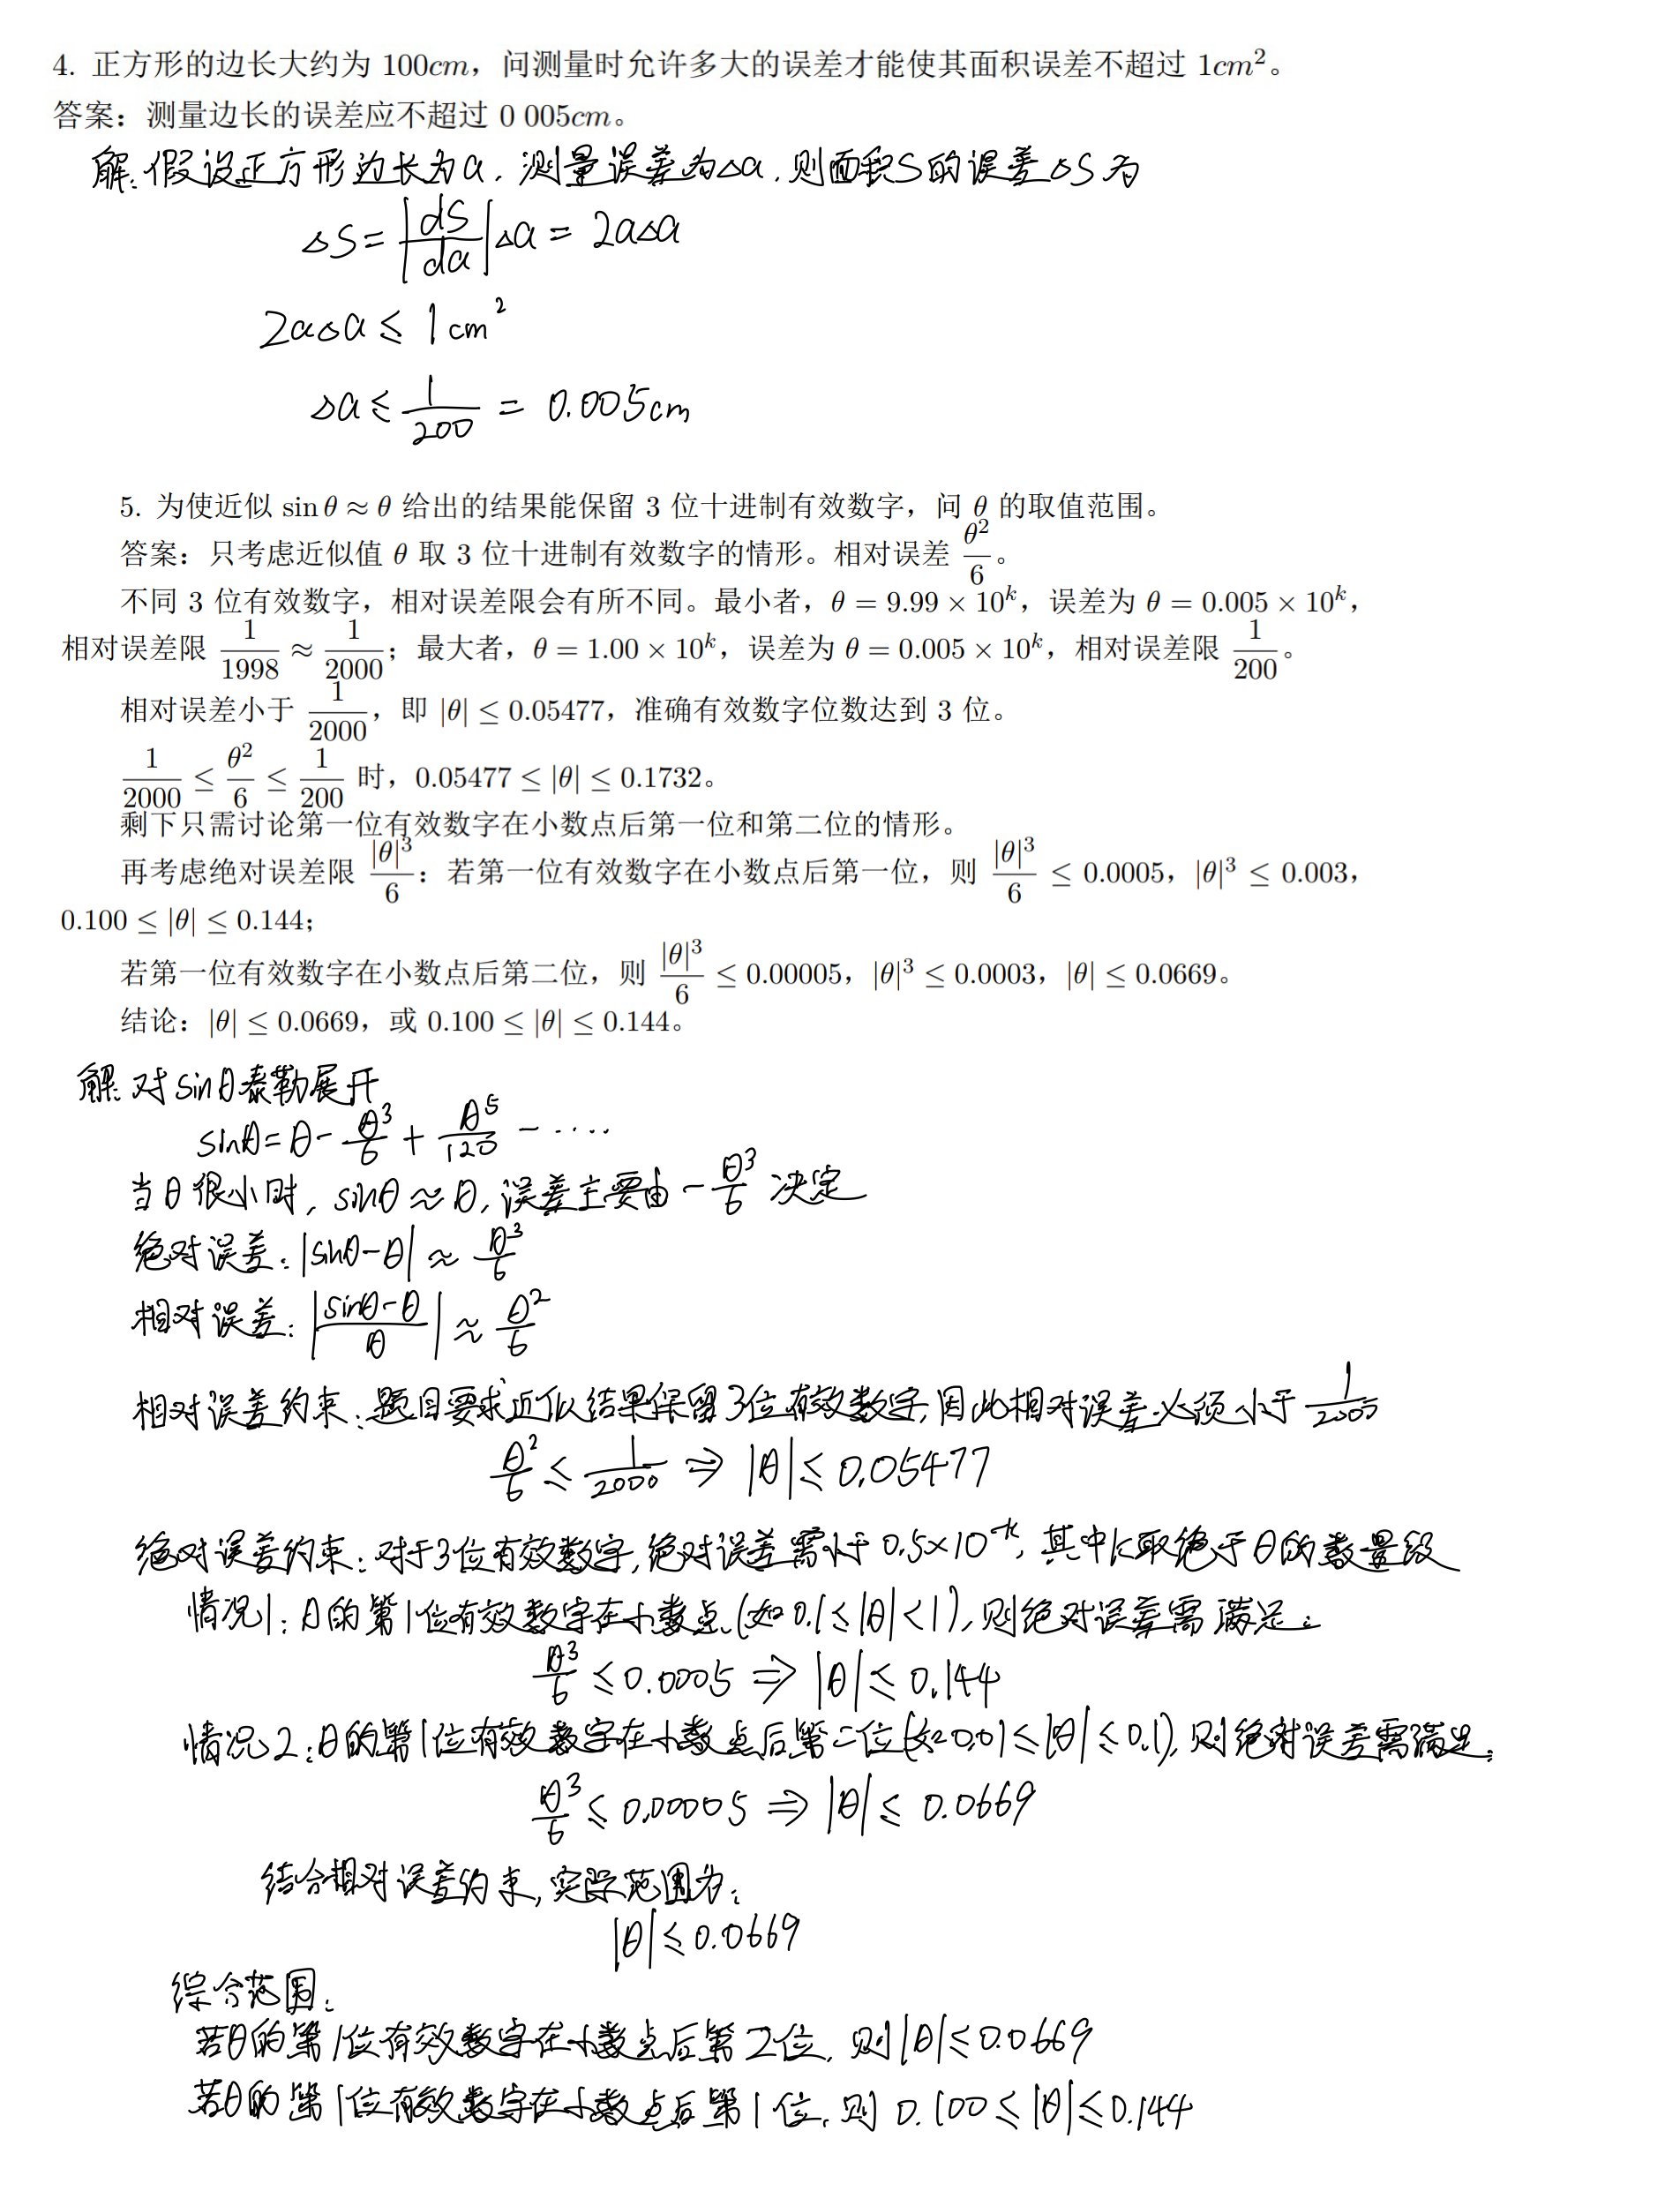 4. 正方形的边长大约为 100cm，问测量时允许多大的误差才能使其面积误差不超过 1cm²。
答案：测量边长的误差应不超过 0 005cm。
解：假设正方形边长为a，测量误差为△a，则面积S的误差△S为
△S = |dS/da|△a = 2a△a
2a△a ≤ 1cm²
△a ≤ 1/200 = 0.005cm
5. 为使近似 sin θ ≈ θ 给出的结果能保留 3 位十进制有效数字，问 θ 的取值范围。
答案：只考虑近似值 θ 取 3 位十进制有效数字的情形。相对误差 θ²/6。
不同 3 位有效数字，相对误差限会有所不同。最小者，θ = 9.99 × 10^k，误差为 θ = 0.005 × 10^k，
相对误差限 1/1998 ≈ 1/2000；最大者，θ = 1.00 × 10^k，误差为 θ = 0.005 × 10^k，相对误差限 1/200。
相对误差小于 1/2000，即 |θ| ≤ 0.05477，准确有效数字位数达到 3 位。
1/2000 ≤ θ²/6 ≤ 1/200 时，0.05477 ≤ |θ| ≤ 0.1732。
剩下只需讨论第一位有效数字在小数点后第一位和第二位的情形。
再考虑绝对误差限 |θ|³/6：若第一位有效数字在小数点后第一位，则 |θ|³/6 ≤ 0.0005，|θ|³ ≤ 0.003，
0.100 ≤ |θ| ≤ 0.144；
若第一位有效数字在小数点后第二位，则 |θ|³/6 ≤ 0.00005，|θ|³ ≤ 0.0003，|θ| ≤ 0.0669。
结论：|θ| ≤ 0.0669，或 0.100 ≤ |θ| ≤ 0.144。
解：对sinθ泰勒展开
sinθ = θ - θ³/6 + θ⁵/120 - ····
当θ很小时，sinθ ≈ θ，误差主要由 -θ³/6 决定
绝对误差：|sinθ-θ| ≈ θ³/6
相对误差：|(sinθ-θ)/θ| ≈ θ²/6
相对误差约束：题目要求近似结果保留3位有效数字，因此相对误差必须小于 1/2000
θ²/6 ≤ 1/2000 ⇒ |θ| ≤ 0.05477
绝对误差约束：对于3位有效数字，绝对误差需小于 0.5×10^-k，其中k取绝于θ的数量段
情况1：θ的第1位有效数字在小数点（如0.1≤|θ|<1），则绝对误差需满足：
θ³/6 ≤ 0.0005 ⇒ |θ| ≤ 0.144
情况2：θ的第1位有效数字在小数点后第二位（如0.01≤|θ|≤0.1），则绝对误差需满足：
θ³/6 ≤ 0.00005 ⇒ |θ| ≤ 0.0669
结合相对误差约束，实际范围为：
|θ| ≤ 0.0669
综合范围：
若θ的第1位有效数字在小数点后第2位，则|θ|≤0.0669
若θ的第1位有效数字在小数点后第1位，则 0.100≤|θ|≤0.144